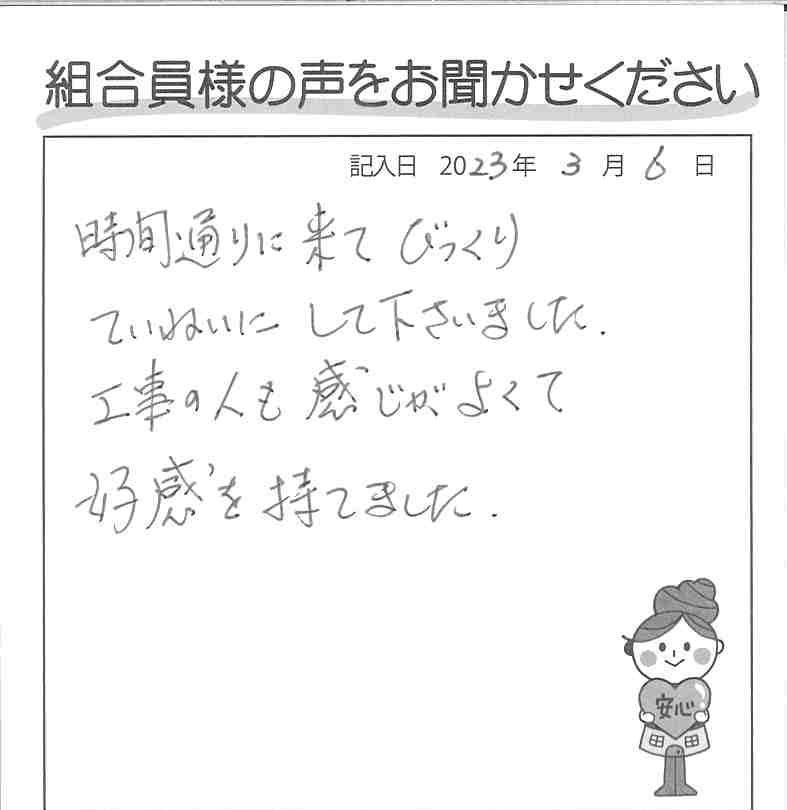 組合員様の声をお聞かせください
記入日 2023年 3月 6日
時間通りに来てびっくり
ていねいにして下さいました.
工事の人も感じがよくて
好感を持てました.
安心